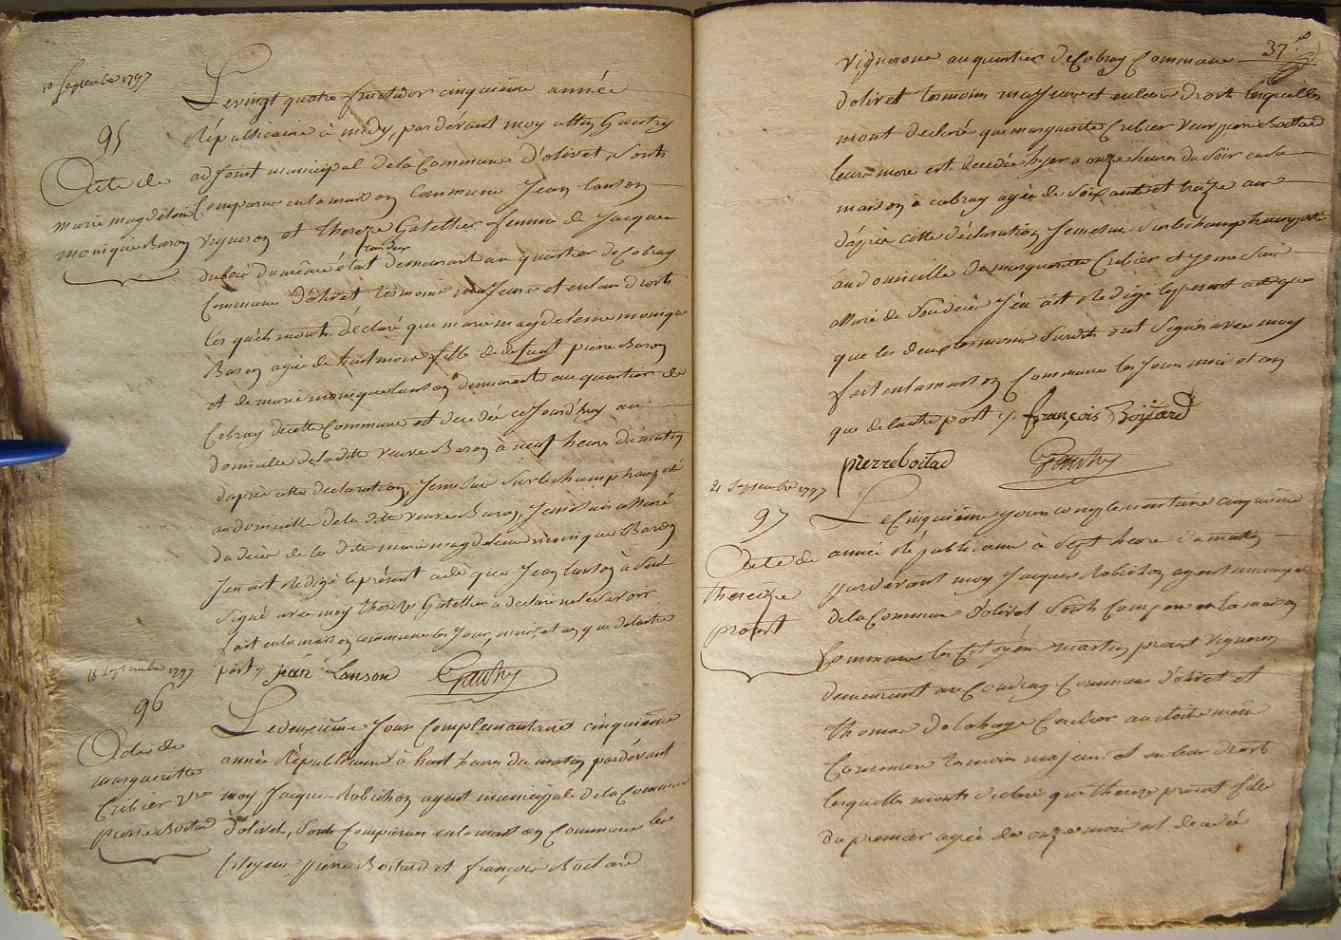 10 Septembre 1797
95
Acte de
marie magdelaine
monique Baron
Le vingt quatre fructidor cinquieme année
Républicaine à midy, pardevant moy Gautry
adjoint municipal de la Commune d'olivet, sont
Comparu en la maison Commune Jean Lanson
vigneron et thereze Gatellier femme de Jacques
dubois du même état demeurant au quartier de Cobray
Commune d'olivet temoins majeurs et en leur droits
lesquels mont déclaré que marie magdeleine monique
Baron agée de huit mois fille de defunt pierre Baron
et de marie monique Lanson demeurante au quartier de
Cobray de cette Commune est decedée ce Jourd'huy au
domicille de la dite veuve Baron à neuf heures du matin
d'après cette declaration, Je me suis sur le champ transporté
au domicille de la dite veuve Baron, Je me suis assuré
du decès de la dite marie magdeleine monique Baron
J'en ait Redigé le présent acte que Jean Lanson à
signé avec moy thereze Gatellier a declaré ne le savoir
fait en la maison commune les Jour, mois et an que de lautre
part / jean Lanson Gautry
18 Septembre 1797
96
Acte de
marguerite
Cribier Vve
pierre Boitard
Le deuxième Jour Complémentaire cinquième
année Républicaine à huit heures du matin pardevant
moy Jacques Robichon agent municipal de la Commune
d'olivet, sont Comparus en la maison Commune les
Citoyens pierre Boitard et françois Boitard
37
vignerons au quartier de Cobray Commune
d'olivet temoins majeurs et en leur droits lesquelles
mont declaré que marguerite Cribier veuve pierre Boitard
leur mere est decedée hyer a onze heures du soir en sa
maison à cobray agée de soixante et treize ans
d'après cette déclaration Je me suis sur le champ transporté
au domicille de marguerite Cribier et Je me suis
assuré de son decès J'en ait Redigé le present acte
que les deux temoins susdits ont signés avec moy
fait en la maison Commune les Jour mois et an
que de lautre part / françois Boitard
pierre boitad Gautry
21 Septembre 1797
97
Acte de
therese
prout
Le Cinquième jour complementaire cinquième
année Républicaine à sept heure du matin
pardevant moy Jacques Robichon agent municipal
de la Commune d'olivet sont Comparu en la maison
Commune les Citoyens martin prout vigneron
demeurant au Coudray Commune d'olivet et
thomas delahaye au dite même
Commune temoins majeurs et en leur droits
lesquelles monts declaré que thereze prout fille
du premier agée de onze mois est decedé